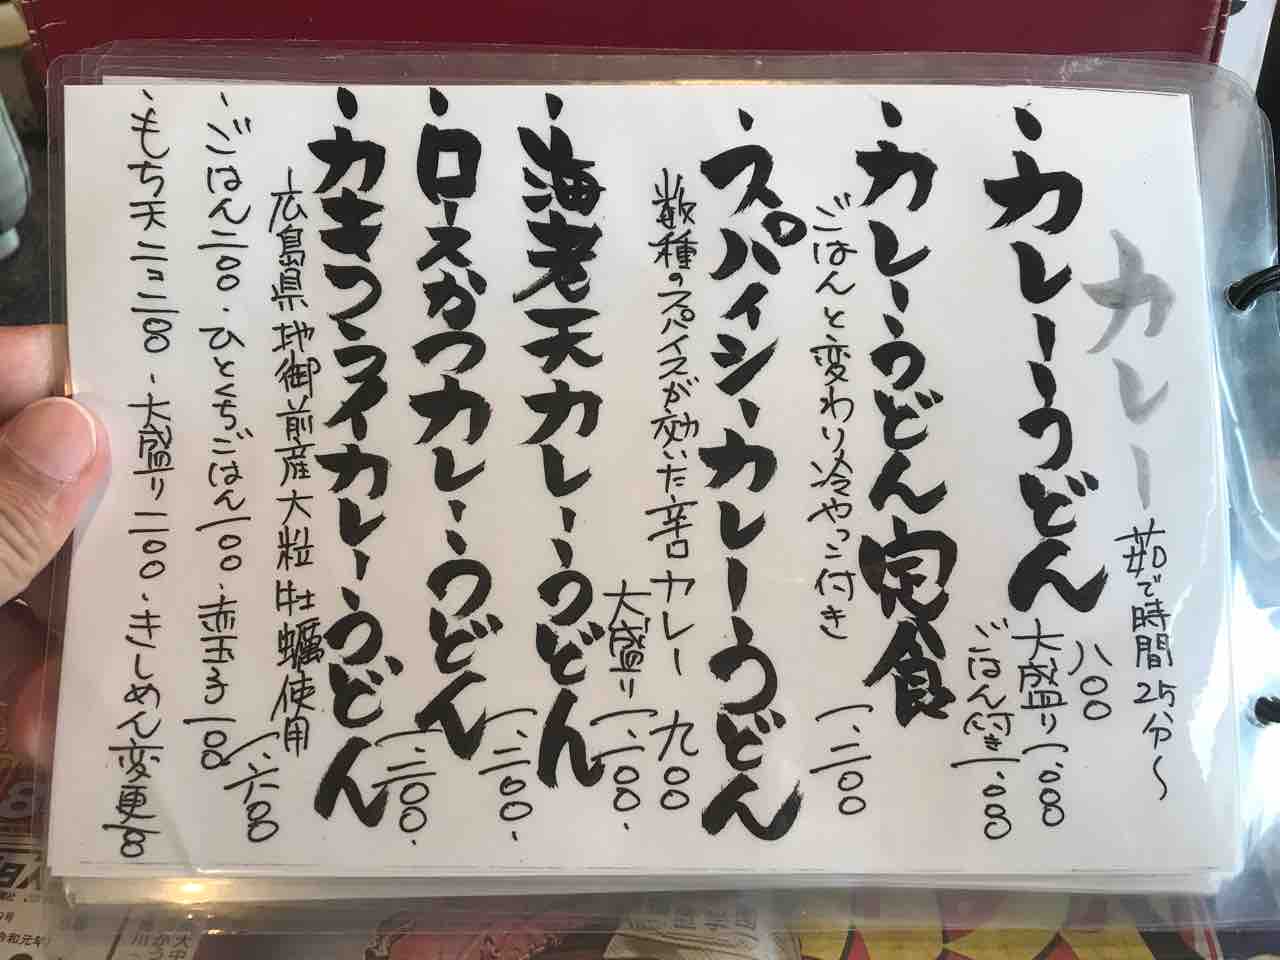 カレー
茹で時間25分〜
・カレーうどん
八〇〇
大盛り一、〇〇〇
ごはん付き一、〇〇〇
・カレーうどん定食
ごはんと変わり冷やっこ付き
一、二〇〇
・スパイシーカレーうどん
数種のスパイスが効いた辛口カレー 九〇〇
大盛り一、一〇〇
・海老天カレーうどん
一、二〇〇
・ロースかつカレーうどん
・カキフライカレーうどん
広島県地御前産大粒牡蠣使用
一、六〇〇
・ごはん二〇〇・ひとくちごはん一〇〇・赤玉子一〇〇
・もち天二コ二〇〇・大盛り二〇〇・きしめん変更